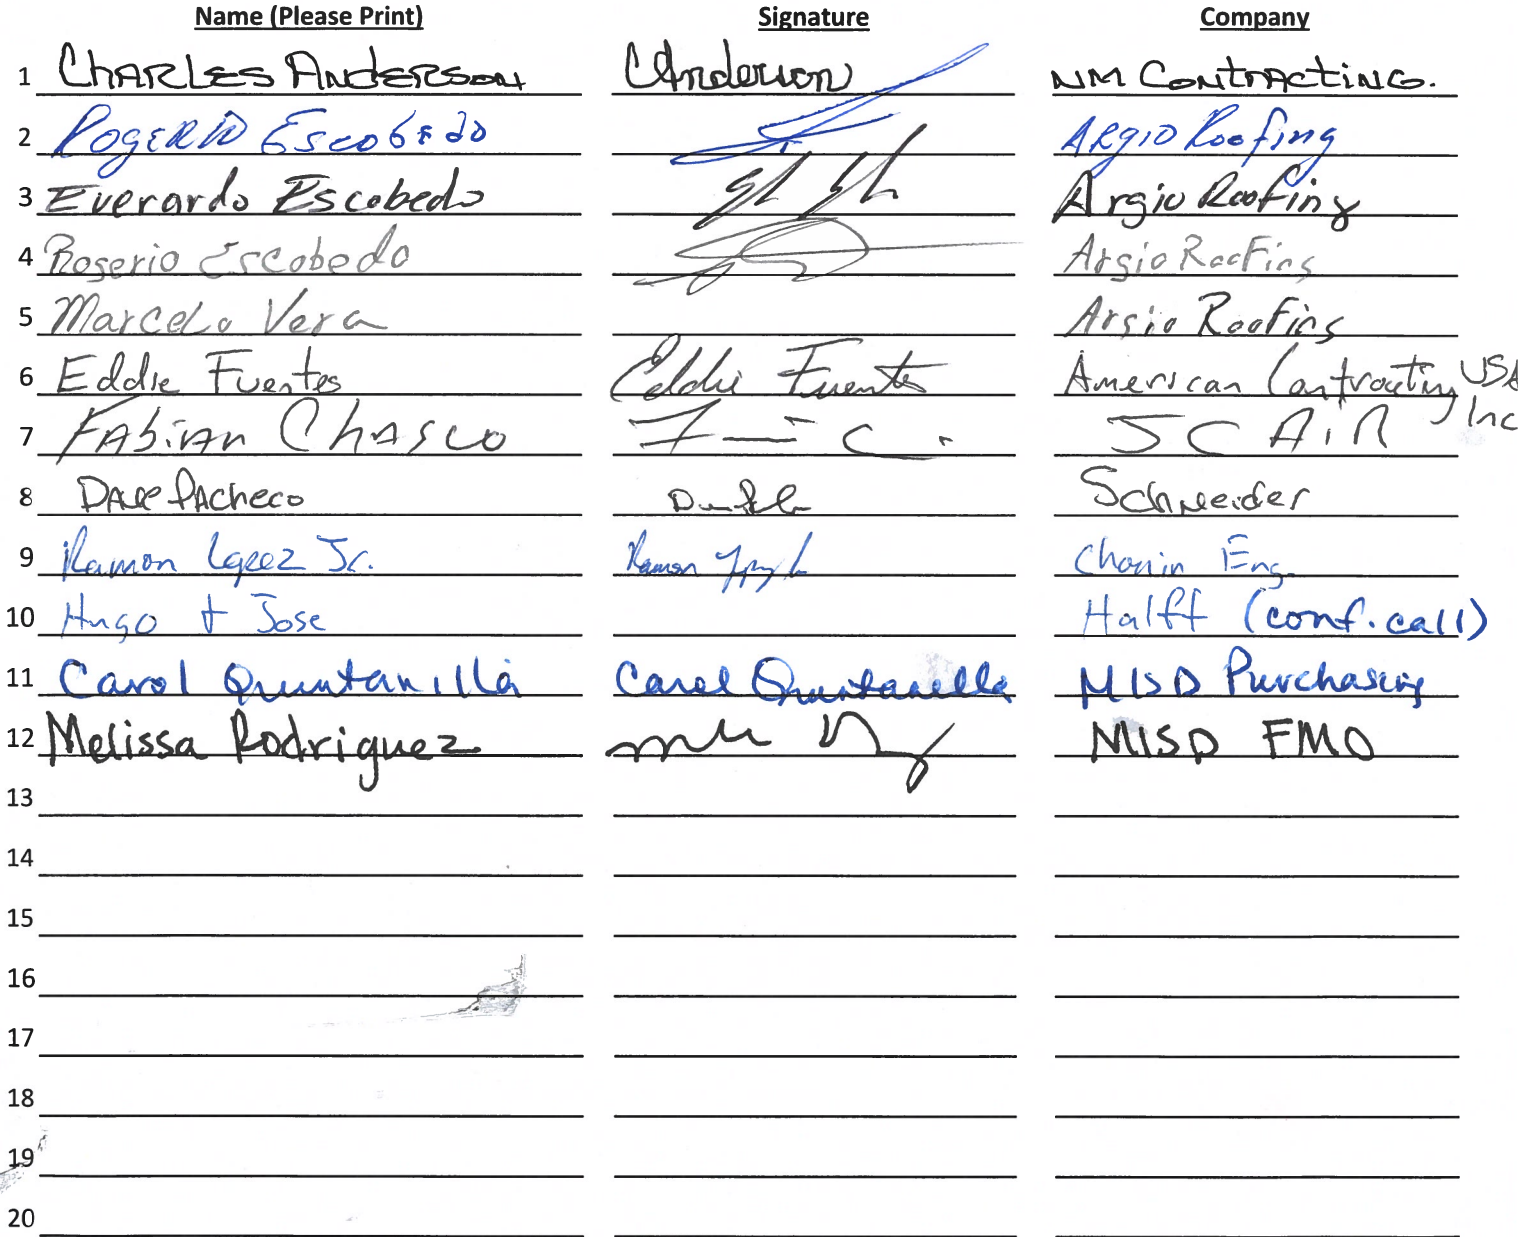 Name (Please Print) Signature Company
1 CHARLES ANDERSON CAnderson NM CONTRACTING.
2 ROGERIO Escobedo ARGIO Roofing
3 Everardo Escobedo Argio Roofing
4 Rogerio Escobedo Argio Roofing
5 Marcelo Vera Argio Roofing
6 Eddie Fuentes Eddie Fuentes American Contracting USA Inc
7 FABiAN CHASCO JC AiR
8 DALE PACHECO Schneider
9 Ramon Lopez Jr. Ramon Chanin Eng.
10 Hugo + Jose Halff (conf. call)
11 Carol Quintanilla Carol Quintanilla MISD Purchasing
12 Melissa Rodriguez MISD FMO
13
14
15
16
17
18
19
20